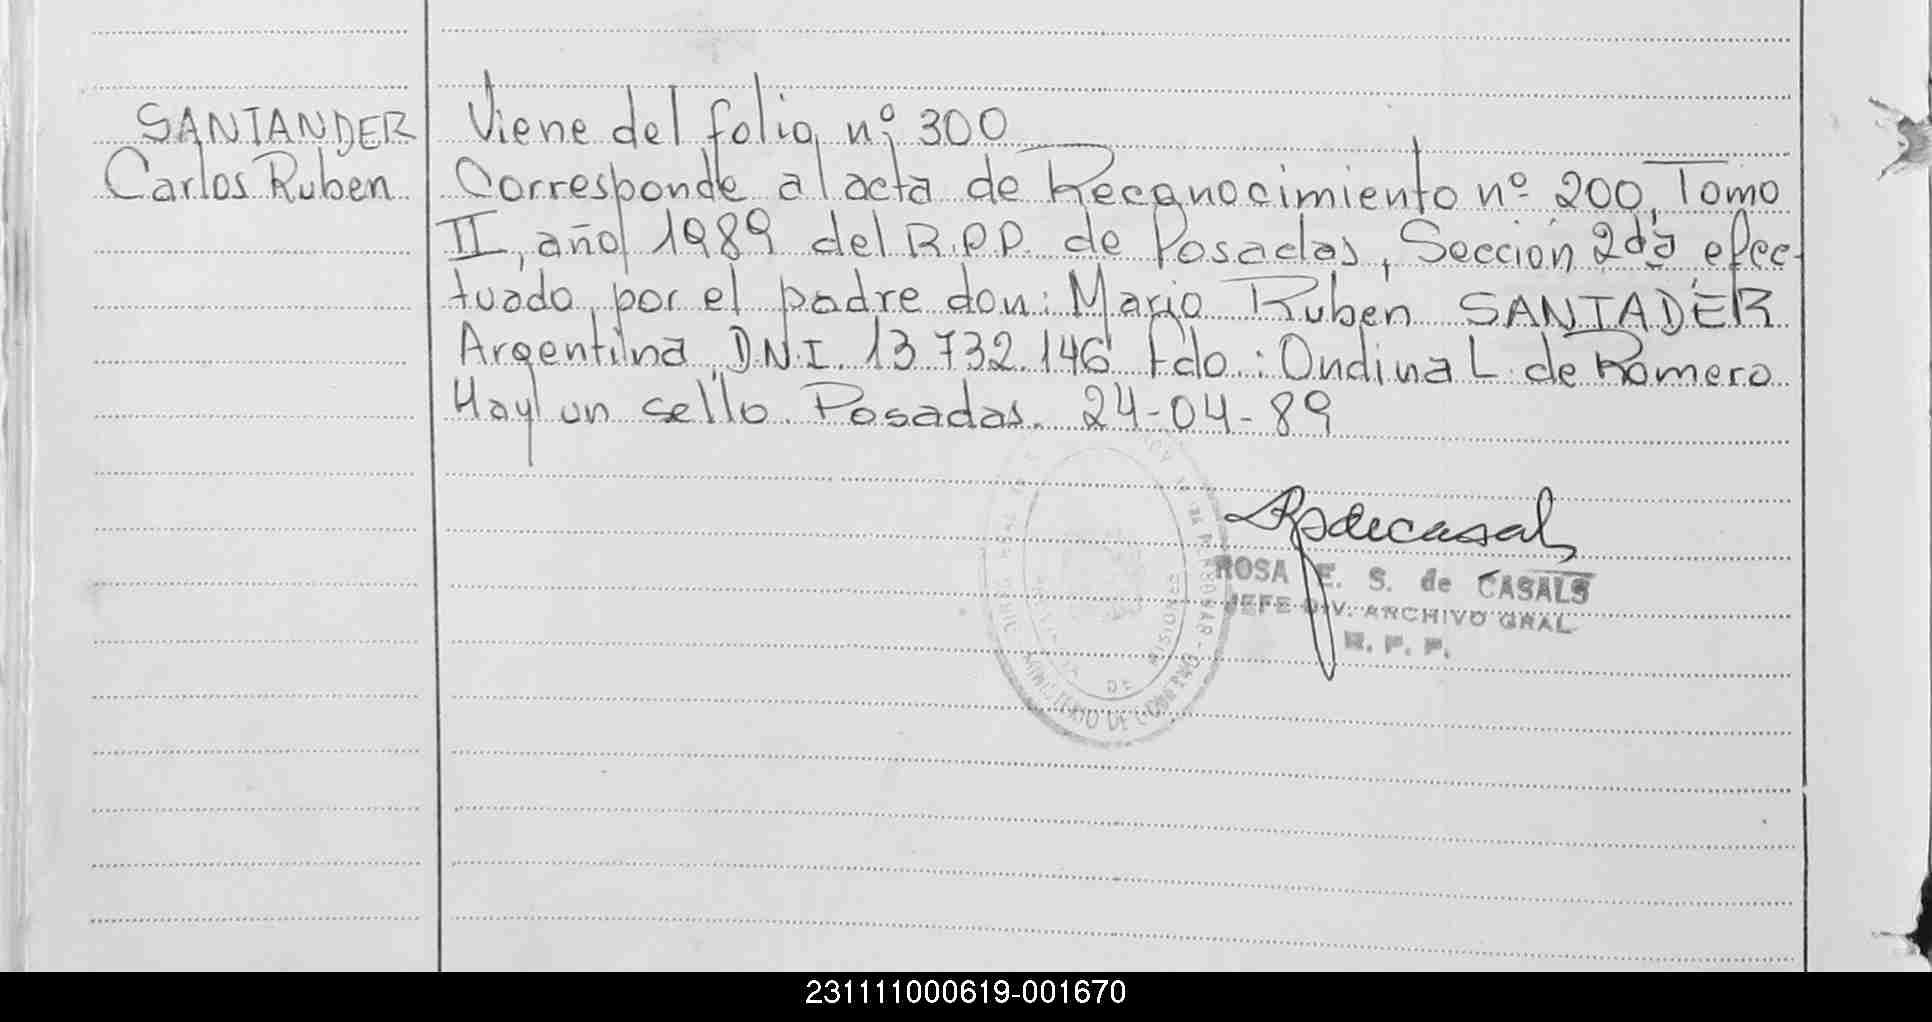 SANTANDER
Carlos Ruben
Viene del folio nº 300
Corresponde al acta de Reconocimiento nº 200, Tomo
II, año 1989 del R.P.P. de Posadas, Sección 2dá efec-
tuado por el padre don: Mario Ruben SANTADER
Argentina D.N.I. 13.732.146 Fdo.: Ondina L. de Romero
Hay un sello. Posadas. 24-04-89
ROSA E. S. de CASALS
JEFE DIV. ARCHIVO GRAL
R. P. P.
MINISTERIO DE GOBIERNO
DE MISIONES
231111000619-001670